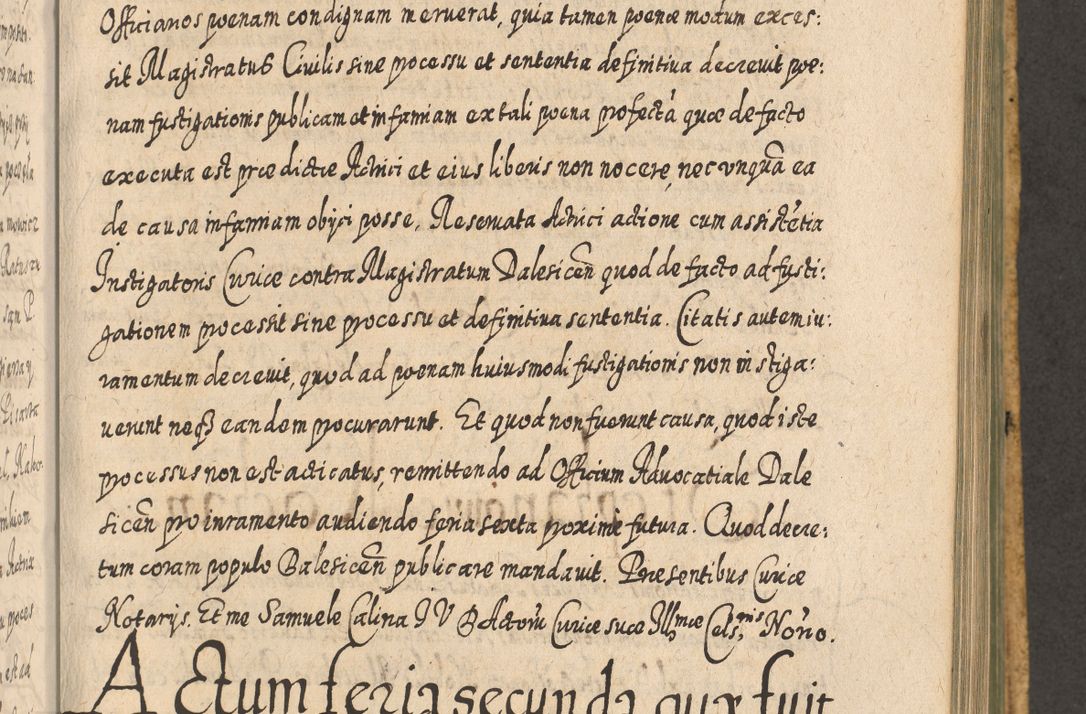 Officianos poenam condignam meruerat, quia tamen poenæ modum exces:
sit Magistratus Civilis sine processu et sententia definitiva decrevit poe:
nam fustigationis publicam et infamiam ex tali poena profectá quæ de facto
executa est præ dictæ Actrici et eius liberis non nocere, nec vnquã ea
de causa infamiam obijci posse. Reservata Actrici actione cum assistẽtia
Instigatoris Curiæ contra Magistratum Balesiceñ quod de facto ad fusti:
gationem processit sine processu et definitiva sententia. Citatis autem iu:
ramentum decrevit, quod ad poenam huiusmodi fustigationis non instiga:
verunt neqȝ eandem procurarunt. Et quod non fuerunt causa, quod iste
processus non est acticatus, remittendo ad Officium Advocatiale Bale
siceñ pro iuramento audiendo feria sexta proximè futura. Quod decre:
tum coram populo Balesiceñ publicare mandavit. Præsentibus Curiæ
Notarijs. Et me Samuele Calina I V D Actorũ Curiæ suæ Illmæ Cels: nis Noŕio.
Actum feria secunda quæ fuit